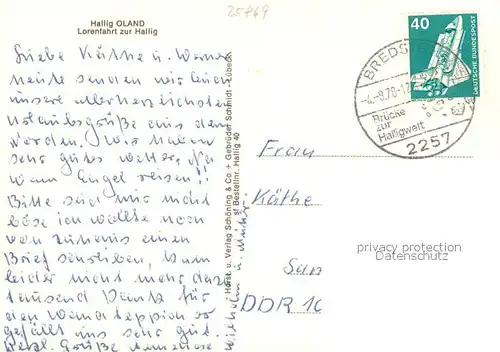 Hallig OLAND
Lorenfahrt zur Hallig
25769
Liebe Käthe u. Werner
heute senden wir Euch
unsere allerherzlichsten
Urlaubsgrüße aus dem
Norden. Wir haben
sehr gutes Wetter, ja
wenn Engel reisen!!
Bitte sei mir nicht
böse ich wollte noch
von zuhause einen
Brief schreiben, kam
leider nicht mehr dazu
tausend Dank für
den Wandteppich er
gefällt uns sehr gut.
Herzl. Grüße
Wilhelm u.
Horst u. Verlag Schöning & Co + Gebrüder Schmidt · Lübeck
Bestellnr. Hallig 40
40
DEUTSCHE BUNDESPOST
BREDSTEDT
-4.-8.78-17
Brücke
zur
Halligwelt
2257
Frau
Käthe
DDR 10
privacy protection
Datenschutz